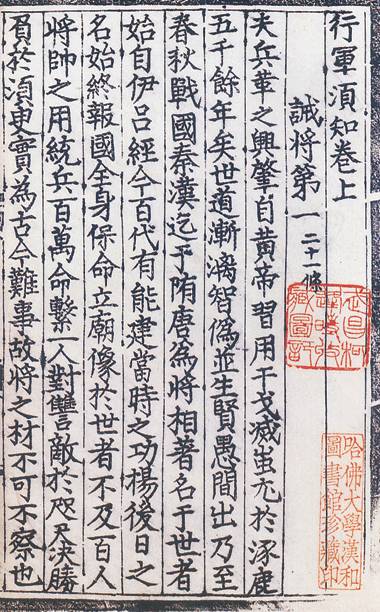 行軍須知卷上
誡将第一 二十一條
夫兵革之興肇自黄帝習用干戈滅蚩尤於涿鹿
五千餘年矣世道漸漓智偽並生賢愚間出乃至
春秋戰國秦漢迄于隋唐為將相著名于世者
始自伊吕經今百代有能建當時之功楊後日之
名始終報國全身保命立廟像於世者不及百人
將帥之用統兵一百萬命繫一人對讐敵於咫尺決勝
負於須臾實為古今難事故將之材不可不察也
哈佛大學漢和
圖書館珍藏印